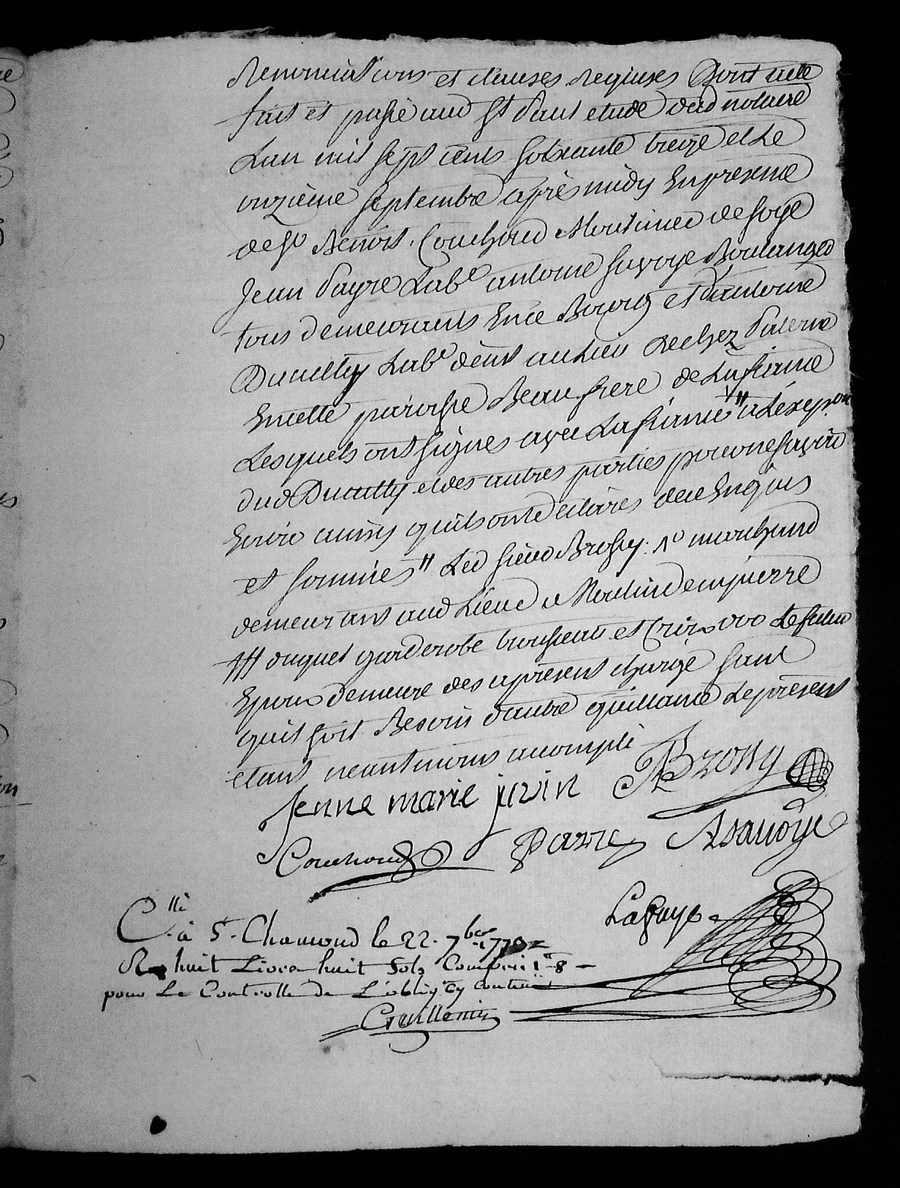 Renonciations et clauses Requises Dont acte
fait et passé aud St Paul etude dud notaire
Lan mil sept cents soixante treize et Le
onzième septembre après midy En presence
de Sr Benoit Couchoud Moulinier de soye
Jean Payre Labr antoine savoye Boulanger
tous demeurants En ce Bourg et d'antoine
Labr dem't au Lieu de chez
En cette paroisse Beau frere de La fiancée
Lesquels ont signes avec La fiancée // a L'exepon
dud et des autres parties pour ne savoir
Ecrire ainsy qu'ils ont declarés de ce Enquis
et sommés // Led sieur Brossy md marchand
demeurant aud Lieu
/// duquel garderobe trousseau et Le futur
Epoux demeure des apresent chargé sans
qu'il soit Besoin d'autre quittance Le present
etant neantmoins accompli
Jenne marie jurin Brossy
Couchoud Payre Asavoye
Lafaye
C.llé à St. Chamond le 22. 7bre 1773
R. huit Livres huit Sols Compris
pour Le Controlle de L'oblig. cy contenüe
Guillemin